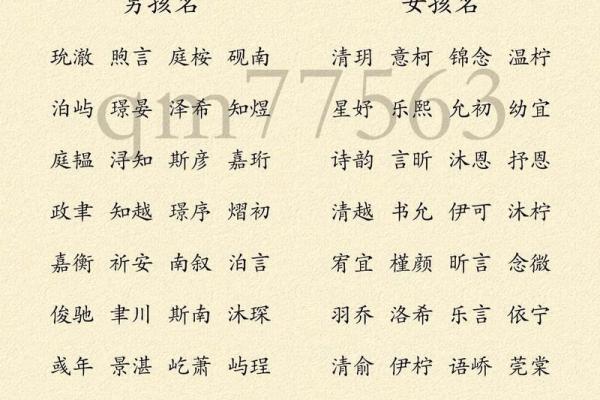 男孩名 女孩名
玧澈 煦言 庭桉 砚南 清玥 意柯 锦念 温柠
泊屿 璟晏 泽希 知煜 星妤 乐熙 允初 幼宜
qm77563
庭韫 浔知 斯彦 嘉珩 诗韵 言昕 沐恩 抒恩
政聿 知越 璟序 熠初 清越 书允 伊可 沐柠
嘉衡 祈安 南叙 泊言 宥宜 槿颜 昕言 念微
俊驰 聿川 斯南 沐琛 羽乔 洛希 乐言 依宁
彧年 景湛 屹萧 屿珵 清俞 伊柠 语峤 莞棠